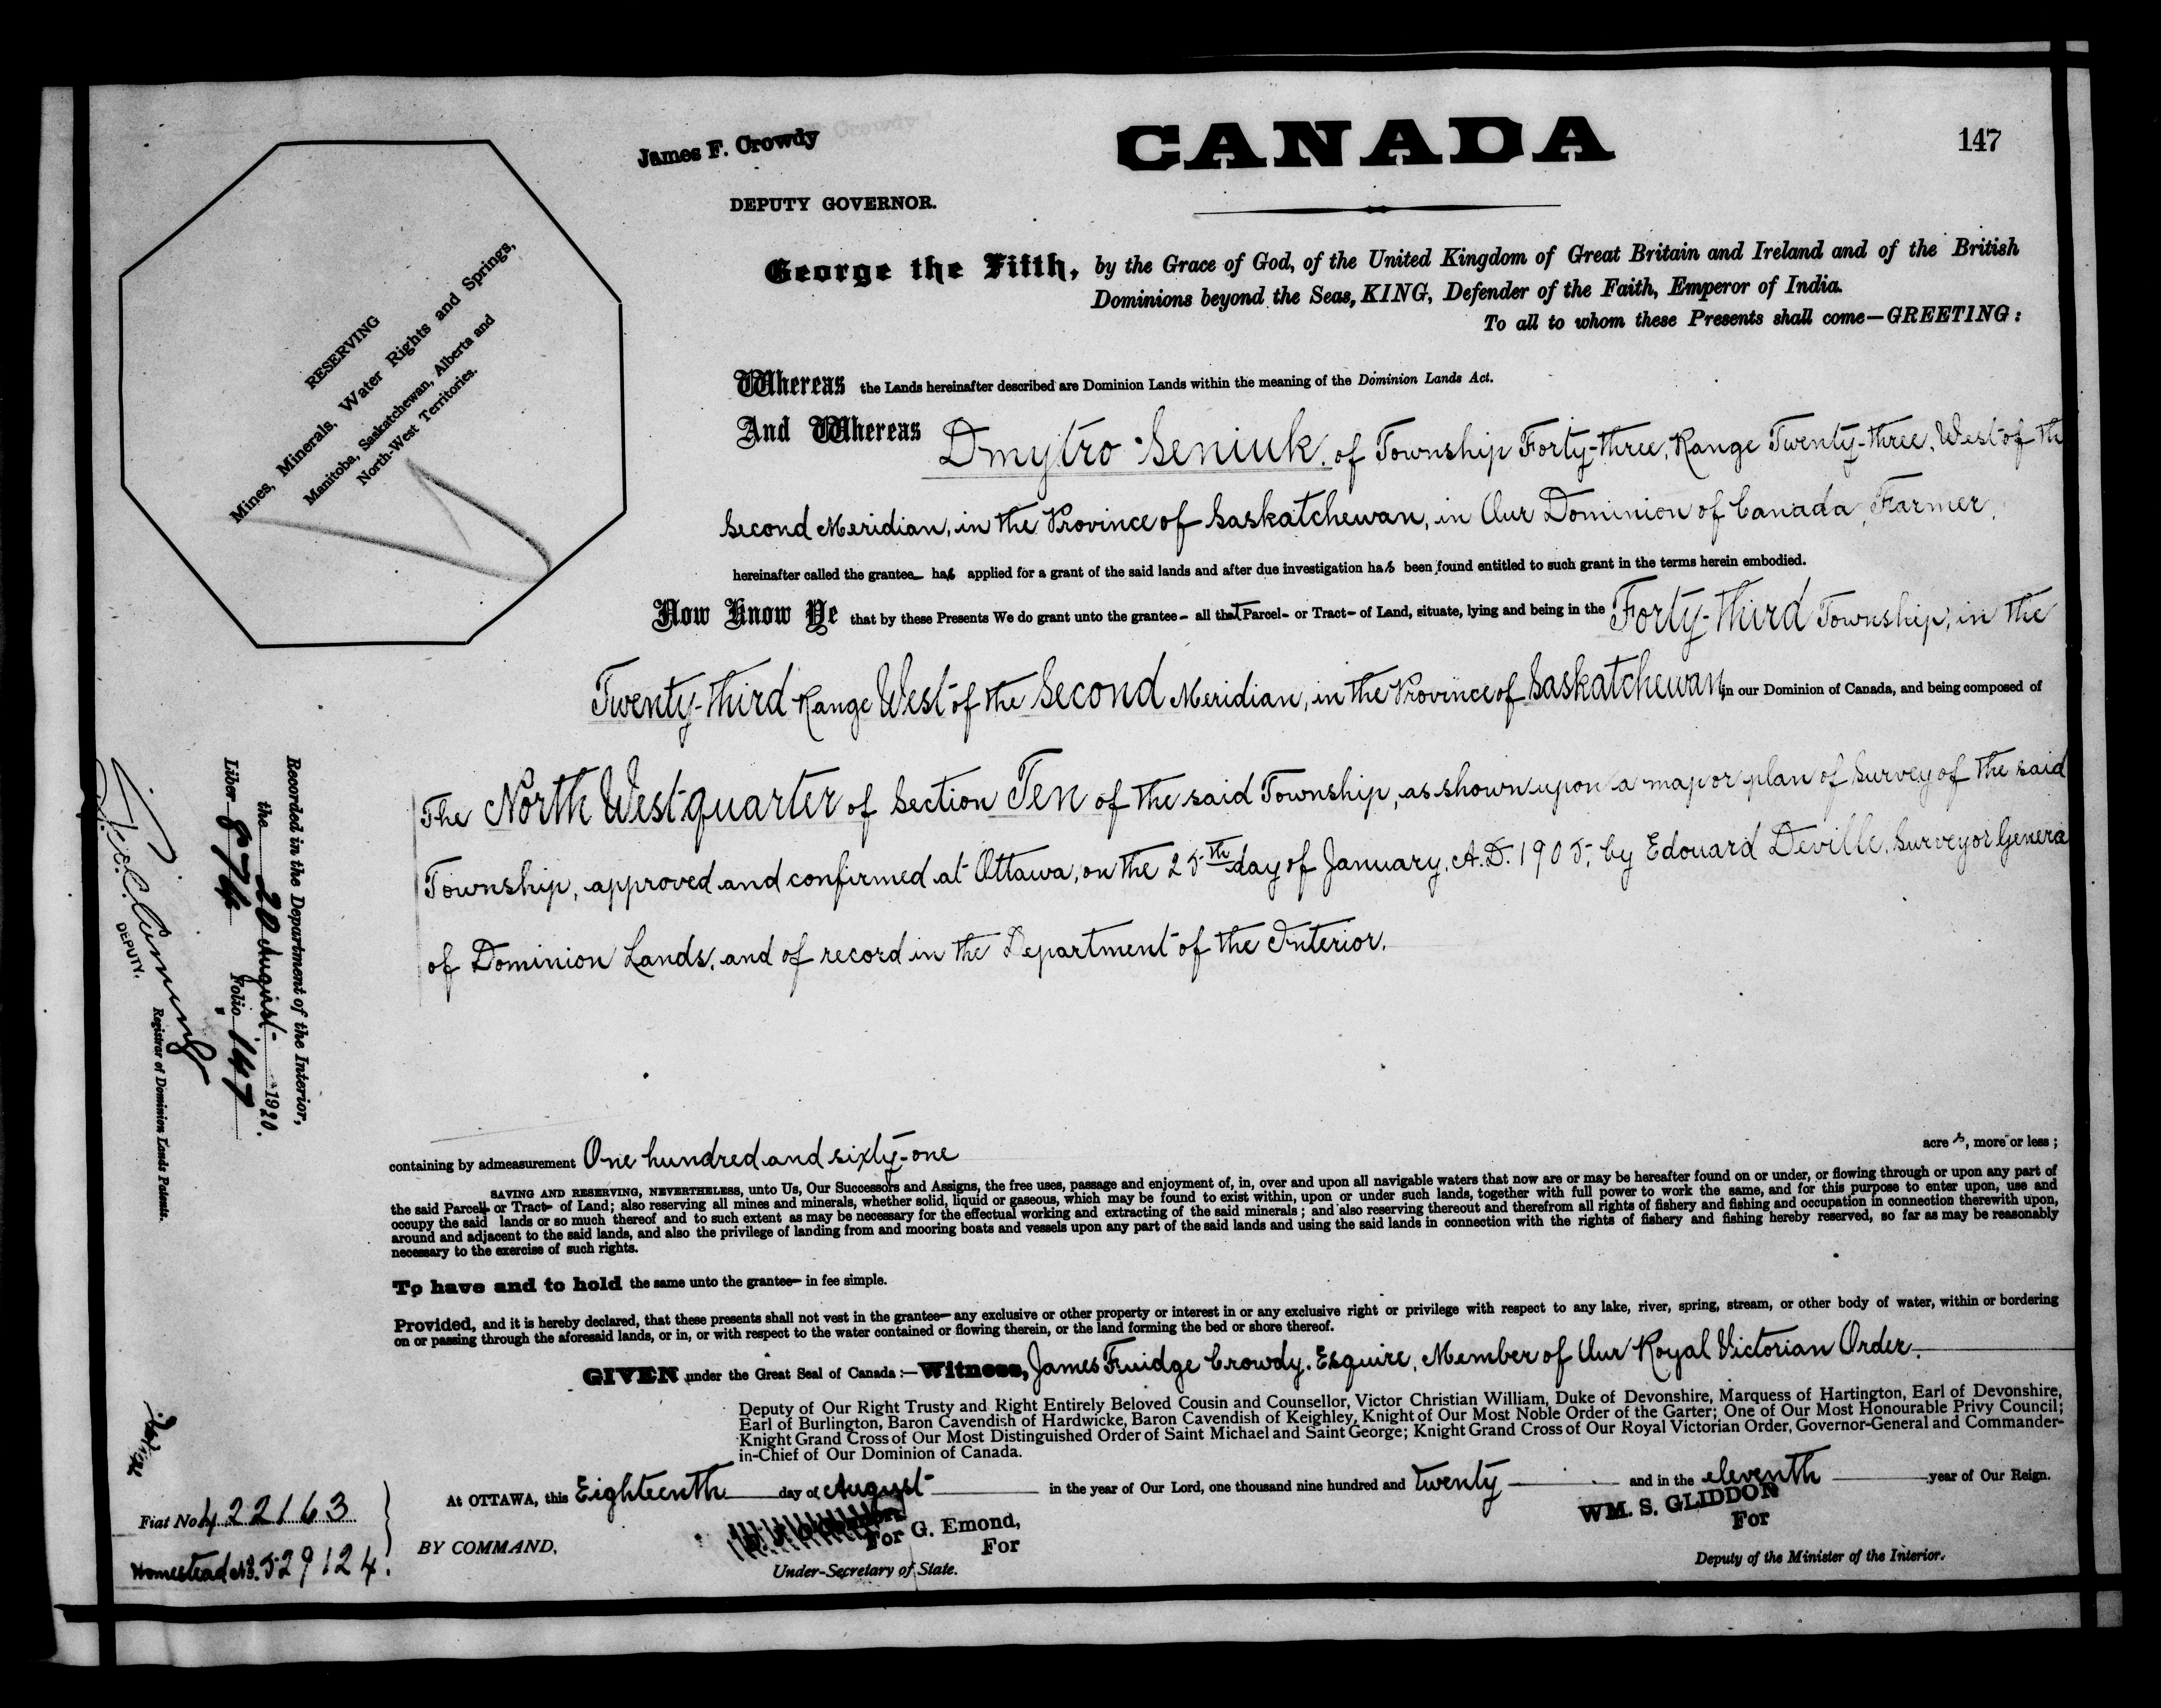 147
James F. Crowdy
CANADA
DEPUTY GOVERNOR.
George the Fifth, by the Grace of God, of the United Kingdom of Great Britain and Ireland and of the British
Dominions beyond the Seas, KING, Defender of the Faith, Emperor of India.
To all to whom these Presents shall come—GREETING:
RESERVING
Mines, Minerals, Water Rights and Springs,
Manitoba, Saskatchewan, Alberta and
North-West Territories.
Whereas the Lands hereinafter described are Dominion Lands within the meaning of the Dominion Lands Act.
And Whereas Dmytro Seniuk, of Township Forty-three, Range Twenty-three, West of the
Second Meridian, in the Province of Saskatchewan, in Our Dominion of Canada, Farmer,
hereinafter called the grantee— has applied for a grant of the said lands and after due investigation has been found entitled to such grant in the terms herein embodied.
Now Know Ye that by these Presents We do grant unto the grantee— all that Parcel- or Tract- of Land, situate, lying and being in the Forty-third Township, in the
Twenty-third Range West of the Second Meridian, in the Province of Saskatchewan, in our Dominion of Canada, and being composed of
The North West quarter of Section Ten of the said Township, as shown upon a map or plan of Survey of the said
Township, approved and confirmed at Ottawa, on the 25th day of January, A.D. 1905, by Edouard Deville, Surveyor Genera
of Dominion Lands, and of record in the Department of the Interior.
Recorded in the Department of the Interior,
the 20 August 1920.
Liber 874 Folio 147
DEPUTY.
Registrar of Dominion Lands Patents.
containing by admeasurement One hundred and sixty-one acres, more or less;
SAVING AND RESERVING, NEVERTHELESS, unto Us, Our Successors and Assigns, the free uses, passage and enjoyment of, in, over and upon all navigable waters that now are or may be hereafter found on or under, or flowing through or upon any part of
the said Parcel- or Tract- of Land; also reserving all mines and minerals, whether solid, liquid or gaseous, which may be found to exist within, upon or under such lands, together with full power to work the same, and for this purpose to enter upon, use and
occupy the said lands or so much thereof and to such extent as may be necessary for the effectual working and extracting of the said minerals; and also reserving thereout and therefrom all rights of fishery and fishing and occupation in connection therewith upon,
around and adjacent to the said lands, and also the privilege of landing from and mooring boats and vessels upon any part of the said lands and using the said lands in connection with the rights of fishery and fishing hereby reserved, so far as may be reasonably
necessary to the exercise of such rights.
To have and to hold the same unto the grantee— in fee simple.
Provided, and it is hereby declared, that these presents shall not vest in the grantee— any exclusive or other property or interest in or any exclusive right or privilege with respect to any lake, river, spring, stream, or other body of water, within or bordering
on or passing through the aforesaid lands, or in, or with respect to the water contained or flowing therein, or the land forming the bed or shore thereof.
GIVEN under the Great Seal of Canada:—Witness, James Fruidge Crowdy, Esquire, Member of Our Royal Victorian Order.
Deputy of Our Right Trusty and Right Entirely Beloved Cousin and Counsellor, Victor Christian William, Duke of Devonshire, Marquess of Hartington, Earl of Devonshire,
Earl of Burlington, Baron Cavendish of Hardwicke, Baron Cavendish of Keighley, Knight of Our Most Noble Order of the Garter; One of Our Most Honourable Privy Council;
Knight Grand Cross of Our Most Distinguished Order of Saint Michael and Saint George; Knight Grand Cross of Our Royal Victorian Order, Governor-General and Commander-
in-Chief of Our Dominion of Canada.
At OTTAWA, this Eighteenth day of August in the year of Our Lord, one thousand nine hundred and twenty and in the eleventh year of Our Reign.
Fiat No 422163
Homestead No. 529124.
BY COMMAND,
For G. Emond,
For
Under-Secretary of State.
WM. S. GLIDDON
For
Deputy of the Minister of the Interior.